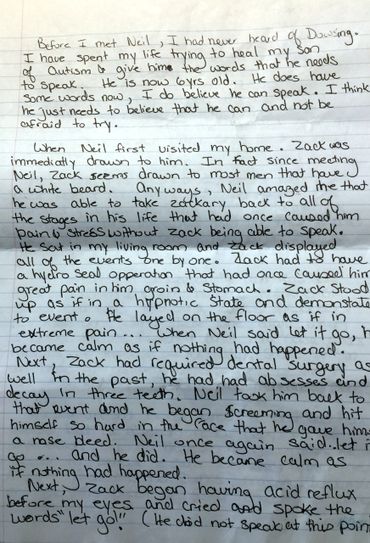 Before I met Neil, I had never heard of Dowsing.
I have spent my life trying to heal my son
of Autism & give him the words that he needs
to speak. He is now 6yrs old. He does have
some words now, I do believe he can speak. I think
he just needs to believe that he can and not be
afraid to try.
When Neil first visited my home. Zack was
immediatly drawn to him. In fact since meeting
Neil, Zack seems drawn to most men that have
a white beard. Anyways, Neil amazed me that
he was able to take Zackary back to all of
the stages in his life that had once caused him
pain & stress without Zack being able to speak.
He sat in my living room and Zack displayed
all of the events one by one. Zack had to have
a hydro Seal opperation that had once caused him
great pain in him groin & Stomach. Zack Stood
up as if in a hypnotic State and demonstate
to event. He layed on the floor as if in
extreme pain... When Neil said let it go, h
became calm as if nothing had happened.
Next, Zack had required dental surgery as
well in the past, he had had absesses and
decay in three teeth. Neil took him back to
that event and he began screaming and hit
himself so hard in the face that he gave hims
a nose bleed. Neil once again said..let i
go ... and he did. He became calm as
if nothing had happened.
Next, Zack began having acid reflux
before my eyes and cried and spoke the
words "let go!" (He did not speak at this poin